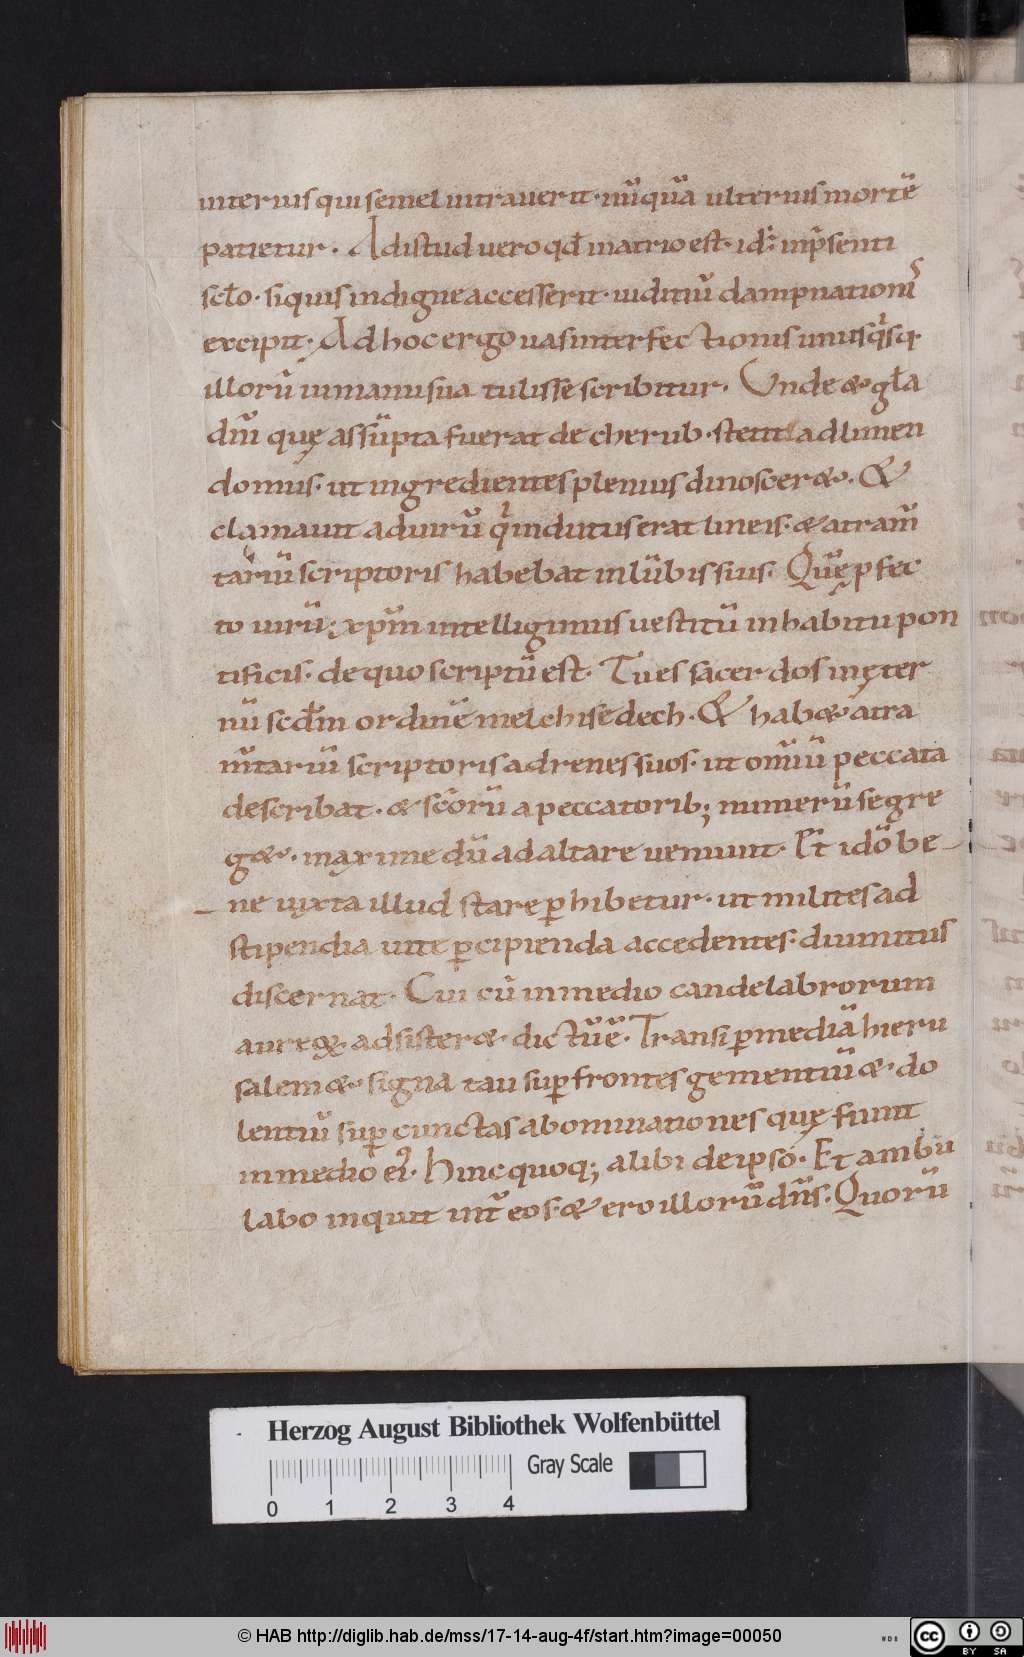 interius qui semel intraverit· nũquã ulterius mortẽ
patietur· Ad istud vero qđ in atrio est· id÷ inp̃senti
scłO· siquis indigne accesserit· iuditiũ dampnationis
excipit· Ad hoc ergo vas interfectionis unusqⁱsq·
illorũ in manu sua tulisse scribitur· Unde & gła
dñi quę assũpta fuerat de cherub· stetit ad limen
domus· ut ingredientes plenius dinoscer&· &
clamavit ad virũ qⁱ indutus erat lineis· & atram̃
tariũ scriptoris habebat in lũbis suis· Quẽ pfec
to virũ; xp̃m intelligimus vestitũ in habitu pon
tificis· de quo scriptũ est· Tu es sacerdos in ęter
nũ scđm ordinẽ melchisedech· & hab& atra
m̃tariũ scriptoris ad renes suos· ut om̃iũ peccata
describat· & sc̃orũ a peccatorib; numerũ segre
g&· maxime dũ ad altare veniunt· Et idõ be
ne iuxta illud stare phibetur· ut milites ad
stipendia vite pcipienda accedentes· divinitus
discernat· Cui cũ in medio candelabrorum
aureoꝝ adsister&· dictũ ẽ· Transi p mediã hieru
salem &· signa tau sup frontes gementiũ &· do
lentiũ sup cunctas abominationes quę fiunt
in medio ei᾽· Hinc quoq; alibi de ipso· Et ambu
labo inquit int̃ eos· & ero illorũ dñs· Quorũ
Herzog August Bibliothek Wolfenbüttel
Gray Scale
0 1 2 3 4
© HAB http://diglib.hab.de/mss/17-14-aug-4f/start.htm?image=00050
WDB
cc BY SA